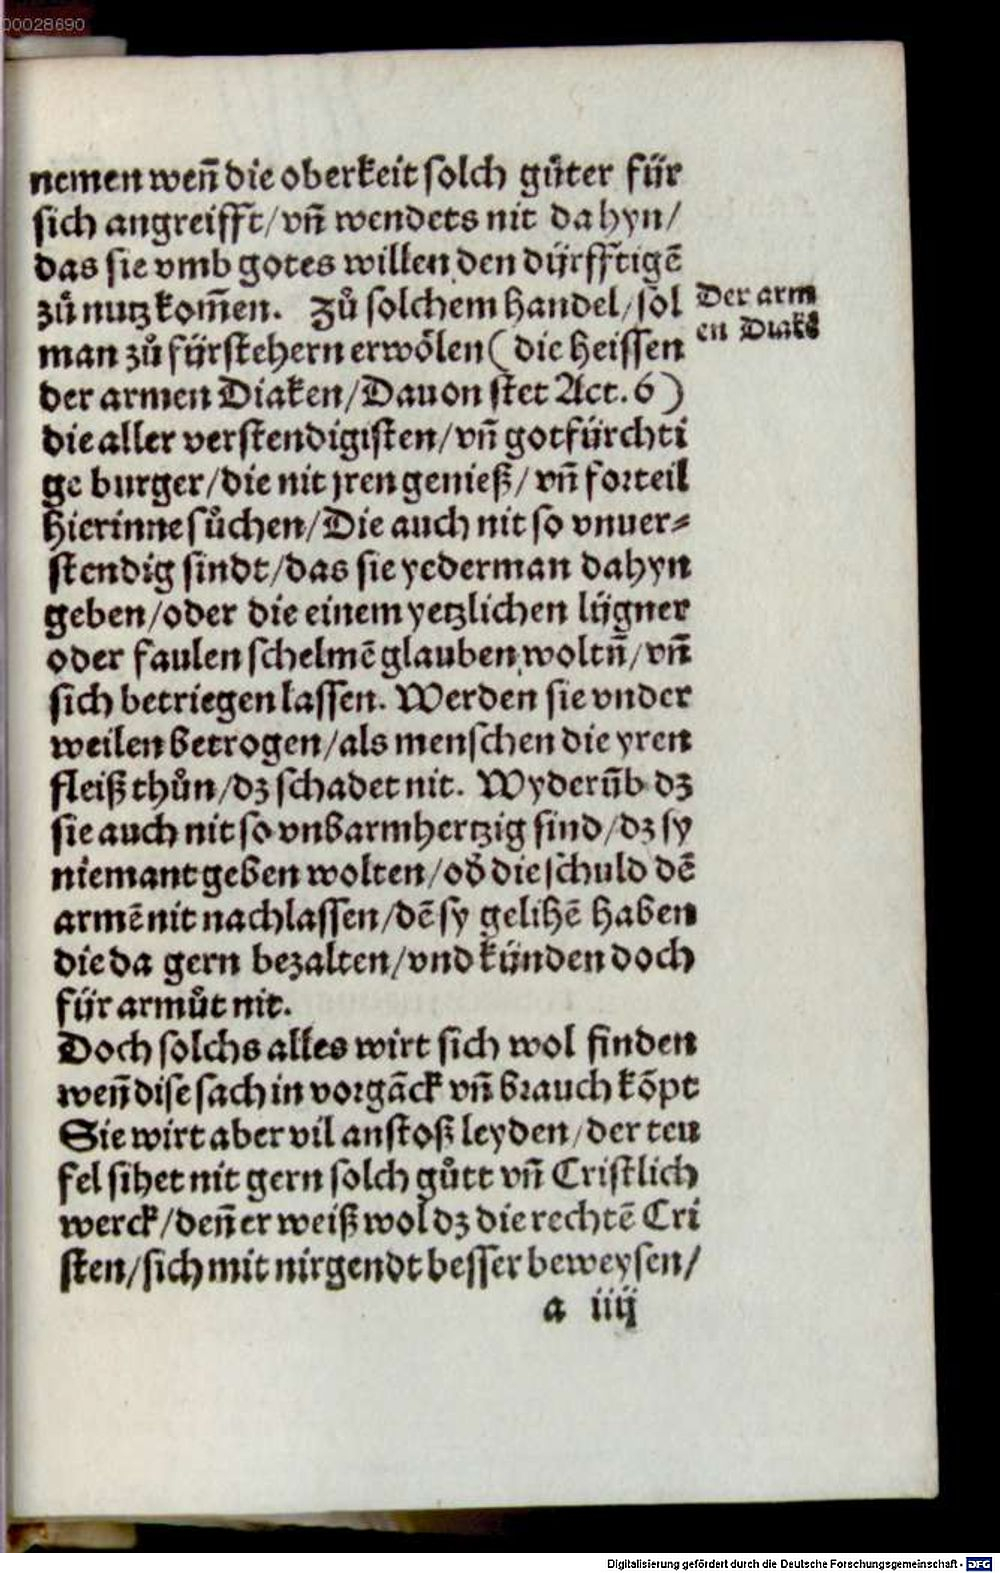 00028690
nemen weñ die oberkeit solch guͤter für
sich angreifft/ vñ wendets nit dahyn/
das sie vmb gotes willen den dürfftigẽ
zuͦ nutz kom̃en. Zuͦ solchem handel/ sol
Der arm
man zuͦ fürstehern erwoͤlen ( die heissen
en Diakẽ
der armen Diaken/ Dauon stet Act. 6 )
die aller verstendigisten/ vñ gotfürchti
ge burger/ die nit jren genieß/ vñ forteil
hierinne suͦchen/ Die auch nit so vnuer⸗
stendig sindt/ das sie yederman dahyn
geben/ oder die einem yetzlichen lügner
oder faulen schelmẽ glauben woltñ/ vñ
sich betriegen lassen. Werden sie vnder
weilen betrogen/ als menschen die yren
fleiß thuͦn/ dz schadet nit. Wyderũb dz
sie auch nit so vnbarmhertzig sind/ dz sy
niemant geben wolten/ od̕ die schuld dẽ
armẽ nit nachlassen/ dẽ sy gelihẽ haben
die da gern bezalten/ vnd künden doch
für armuͦt nit.
Doch solchs alles wirt sich wol finden
weñ dise sach in vorgãck vñ brauch kõpt
Sie wirt aber vil anstoß leyden/ der teu
fel sihet nit gern solch guͦtt vñ Cristlich
werck/ deñ er weiß wol dz die rechtẽ Cri
sten/ sich mit nirgendt besser beweysen/
a iiij
Digitalisierung gefördert durch die Deutsche Forschungsgemeinschaft - DFG